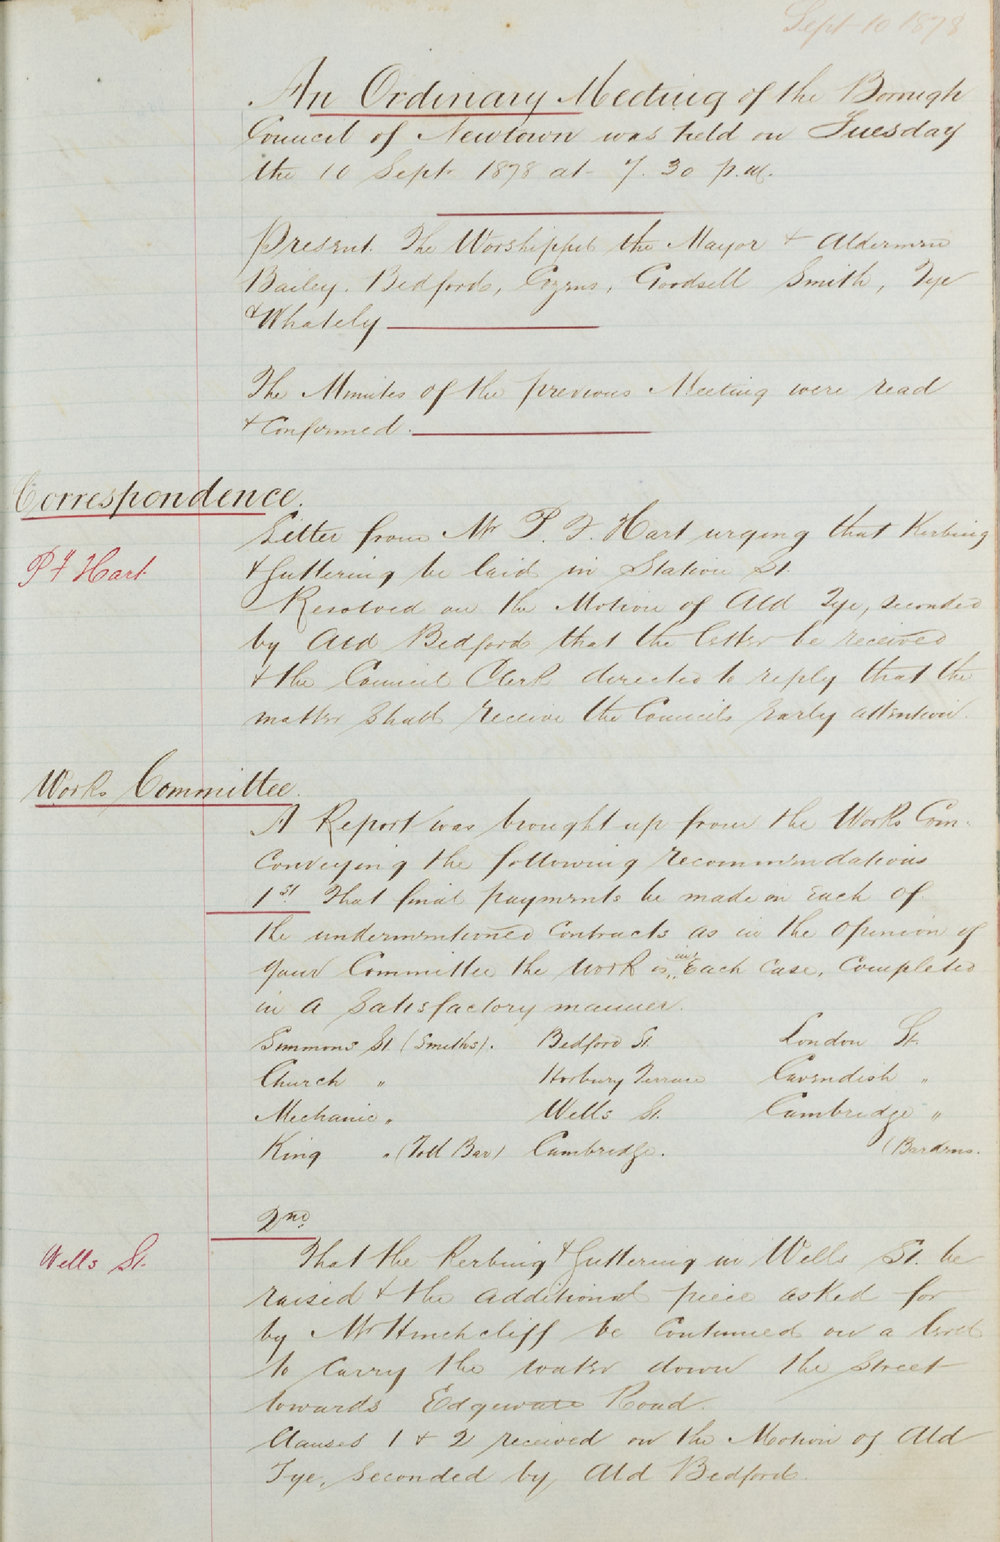 Sept 10 1878
An Ordinary Meeting of the Borough
Council of Newtown was held on Tuesday
the 10 Sept 1878 at 7.30 p.m.
Present. The Worshipful the Mayor & Aldermen
Bailey. Bedford, Cozens, Goodsell Smith, Tye
& Whately
The Minutes of the previous Meeting were read
& Confirmed.
Correspondence.
Letter from Mr P. F. Hart urging that Kerbing
P F Hart
& Guttering be laid in Station St.
Resolved on the Motion of Ald Tye, seconded
by Ald Bedford that the letter be received
& the Council Clerk directed to reply that the
matter shall receive the Councils early attention.
Works Committee.
A Report was brought up from the Works Com.
Conveying the following recommendations
1st. That final payments be made on each of
the undermentioned Contracts as in the opinion of
your Committee the work is, in Each Case, Completed
in a Satisfactory manner.
Simmons St (Smiths). Bedford St. London St.
Church " Horbury Terrace Cavendish "
Mechanic " Wells St. Cambridge "
King " (Toll Bar) Cambridge. (Bardens.
2nd.
That the Kerbing & Guttering in Wells St. be
Wells St.
raised & the additional piece asked for
by Mr Hinchcliff be Continued on a level
to Carry the water down the Street
towards Edgeware Road.
Clauses 1 & 2 received on the Motion of Ald
Tye, Seconded by Ald Bedford.